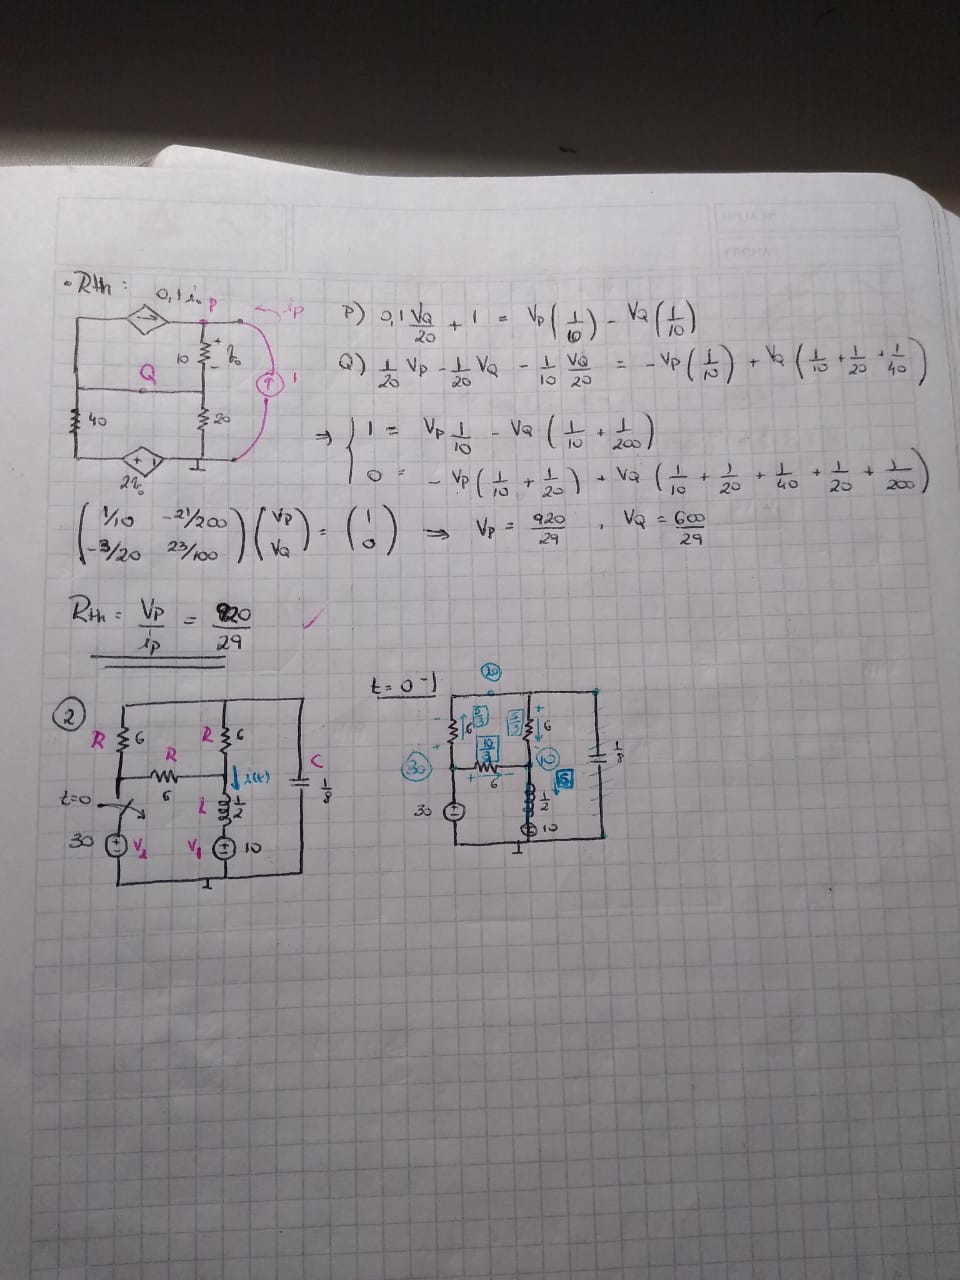 HOJA Nº
FECHA
• Rth :
0,1 i₀ P
← ip
10 + v₀ -
Q
1
40
20
+ -
2v₀
P) 0,1 VQ/20 + 1 = Vp(1/10) - VQ(1/10)
Q) 1/20 Vp - 1/20 VQ - 1/10 VQ/20 = - Vp(1/10) + VQ(1/10 + 1/20 + 1/40)
⇒ { 1 = Vp 1/10 - VQ(1/10 + 1/200)
0 = - Vp(1/10 + 1/20) + VQ(1/10 + 1/20 + 1/40 + 1/20 + 1/200)
(1/10 -21/200 -3/20 23/100)(Vp VQ) = (1 0) ⇒ Vp = 920/29 , VQ = 600/29
Rth = Vp/ip = 920/29 ✓
2
R 6
R 6
R 6
C 1/8
↓ i(t)
L 1/2
t=0
30 + - V2
V1 + - 10
t = 0⁻
20
- 6 + 5/3
5/3 + 6 -
30
10/3
+ 6 -
12
5
1/2
1/8
30 + -
10